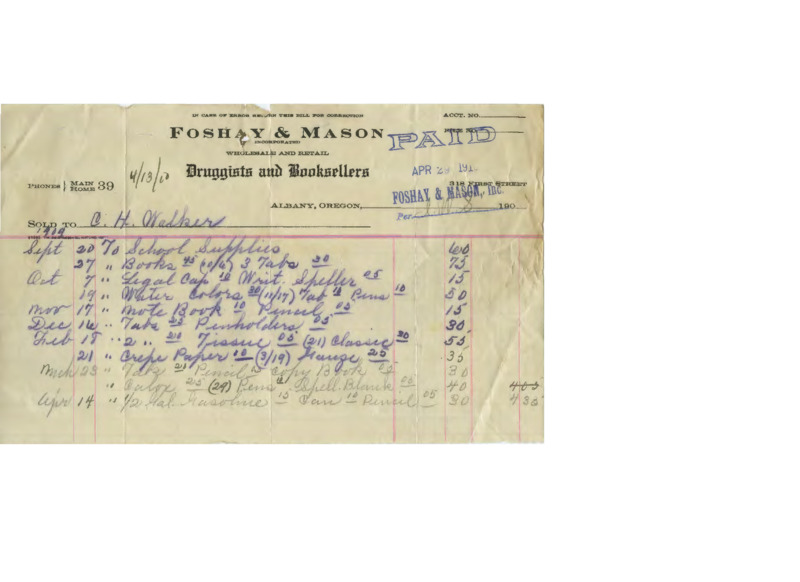 IN CASE OF ERROR RETURN THIS BILL FOR CORRECTION
ACCT. NO.
FOSHAY & MASON
INCORPORATED
PAID
WHOLESALE AND RETAIL
Druggists and Booksellers
4/13/10
APR 29 191
PHONES } MAIN HOME 39
318 FIRST STREET
FOSHAY & MASON, Inc.
ALBANY, OREGON, 190
Per
SOLD TO C. H. Walker
Sept 20 To School Supplies 60
27 " Books 45 (10/6) 3 Tabs 30 75
Oct 7 " Legal Cap 10 Writ. Speller 05 15
19 " Water Colors 30 (11/17) Tab Pens 10 50
Nov 17 " Note Book 10 Pencil 05 15
Dec 14 " Tabs 25 Penholders 05 30
Feb 18 " 2 " 20 Tissue 05 (21) Classic 30 55
21 " Crepe Paper 10 (3/19) Gauze 25 35
Mch 23 " Tab Pencil Copy Book 30
" Calox 25 (29) Pens Spell. Blank 05 40 405
Apr 14 " 1/2 Gal. Gasoline 15 Can 10 Pencil 05 30 435